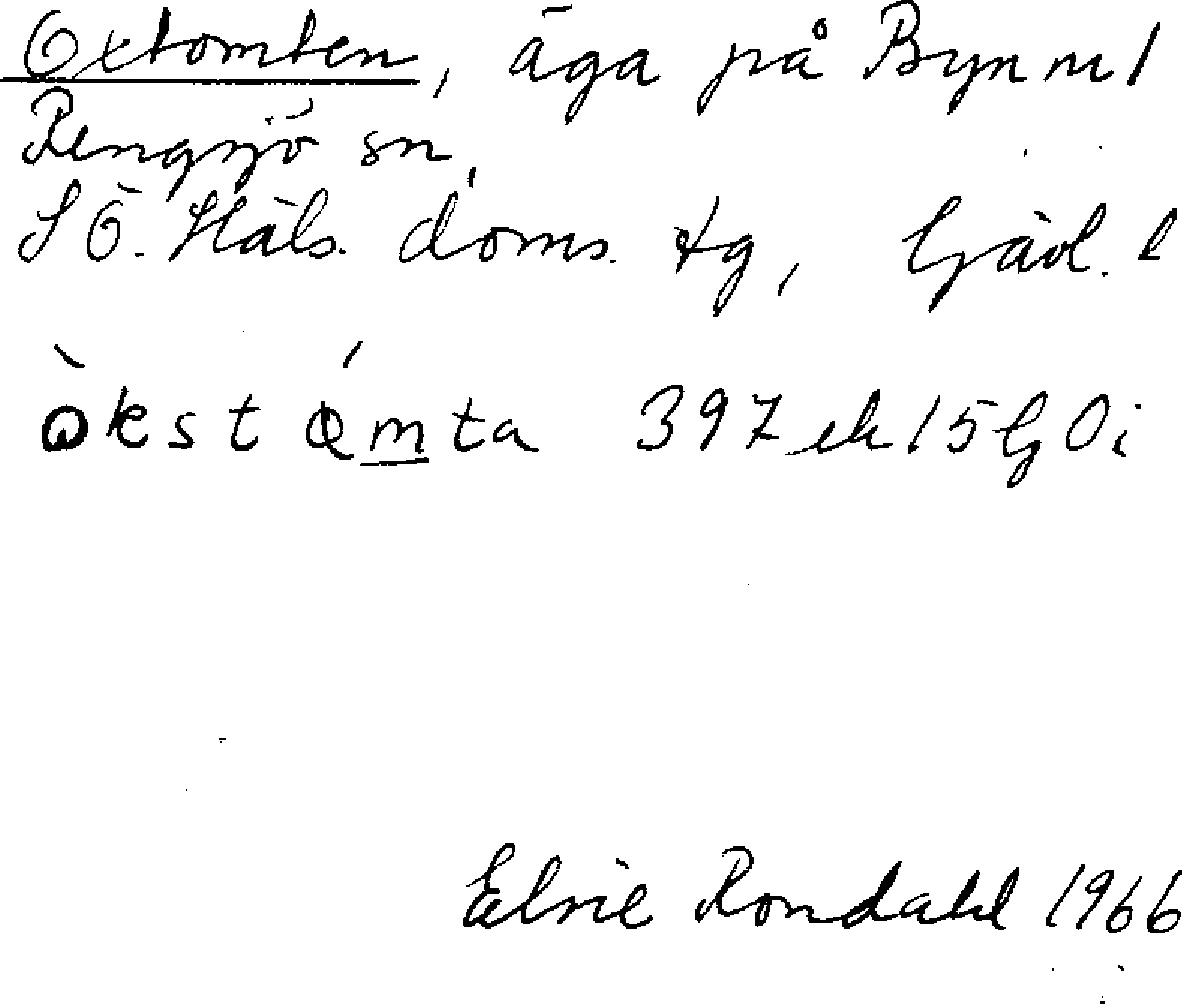 Oxtomten, äga på Byn nr 1
Rengsjö sn,
S Ö. Häls. doms. tg, Gävl. l
òkstómta 397 ek 15 G Oi
Elsie Rondahl 1966